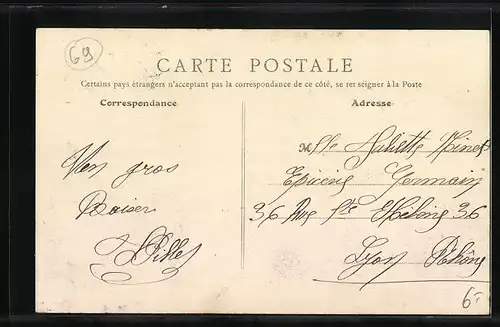 69
CARTE POSTALE
Certains pays étrangers n'acceptant pas la correspondance de ce côté, se rer seigner à la Poste
Correspondance
Adresse
Un gros
Baiser
Mlle Juliette
Epicerie Germain
36 Rue Ste Hélène 36
Lyon Rhône
6-